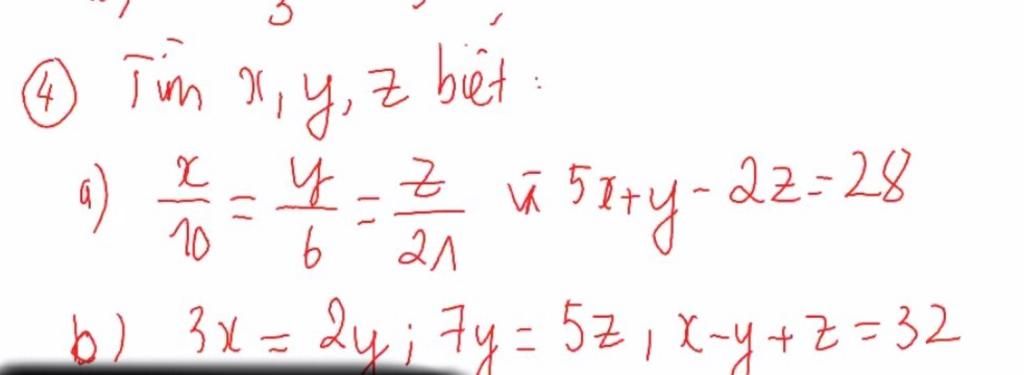 ④ Tìm x, y, z biết :
a) x/10 = y/6 = z/21 và 5x+y-2z=28
b) 3x = 2y ; 7y = 5z , x-y+z=32